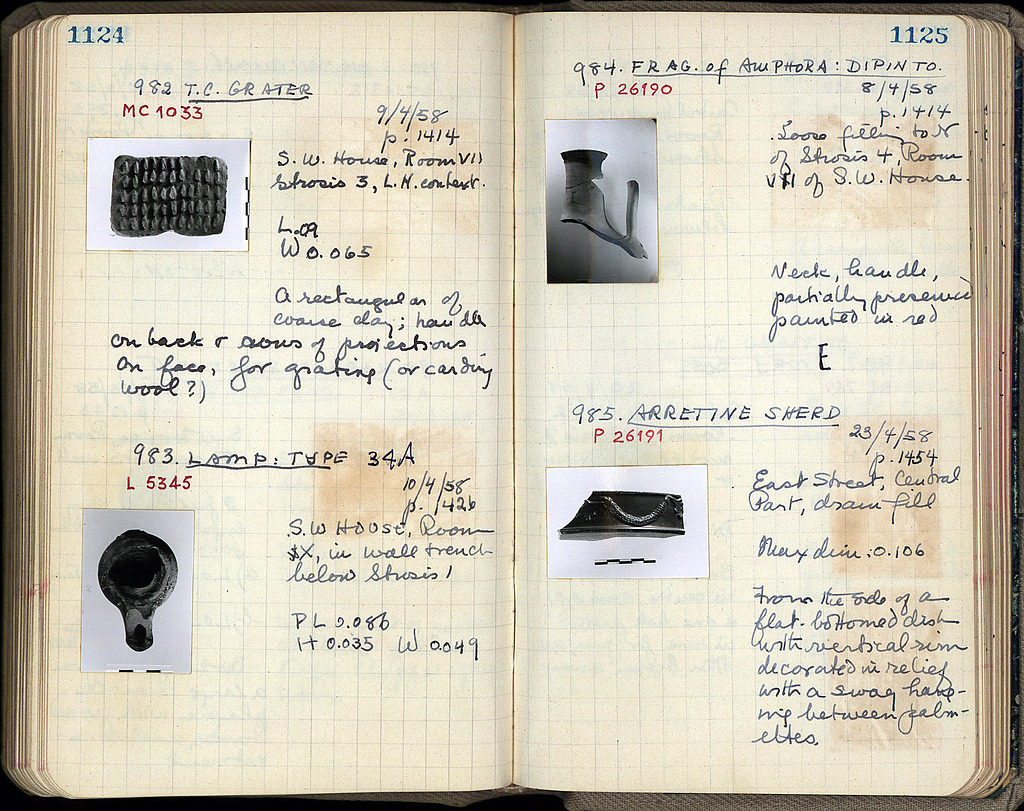 1124
982 T.C. GRATER
MC 1033
9/4/58
p. 1414
S.W. House, Room VII
Strosis 3, L.H. context.
L.09
W 0.065
A rectangular of
coarse clay; handle
on back & rows of projections
on face, for grating (or carding
wool?)
983. LAMP: TYPE 34A
L 5345
10/4/58
p. 1426
S.W HOUSE, Room
IX, in wall trench
below Strosis 1
P L 0.086
H 0.035 W 0.049
1125
984. FRAG. of AMPHORA: DIPINTO.
P 26190
8/4/58
p. 1414
Loose filling to N
of Strosis 4, Room
VII of S.W. House.
Neck, handle,
partially preserved
painted in red
E
985. ARRETINE SHERD
P 26191
23/4/58
p. 1454
East Street, Central
Part, drain fill
Max dim: 0.106
From the side of a
flat-bottomed dish
with vertical rim
decorated in relief
with a swag hang-
ing between palm-
ettes.